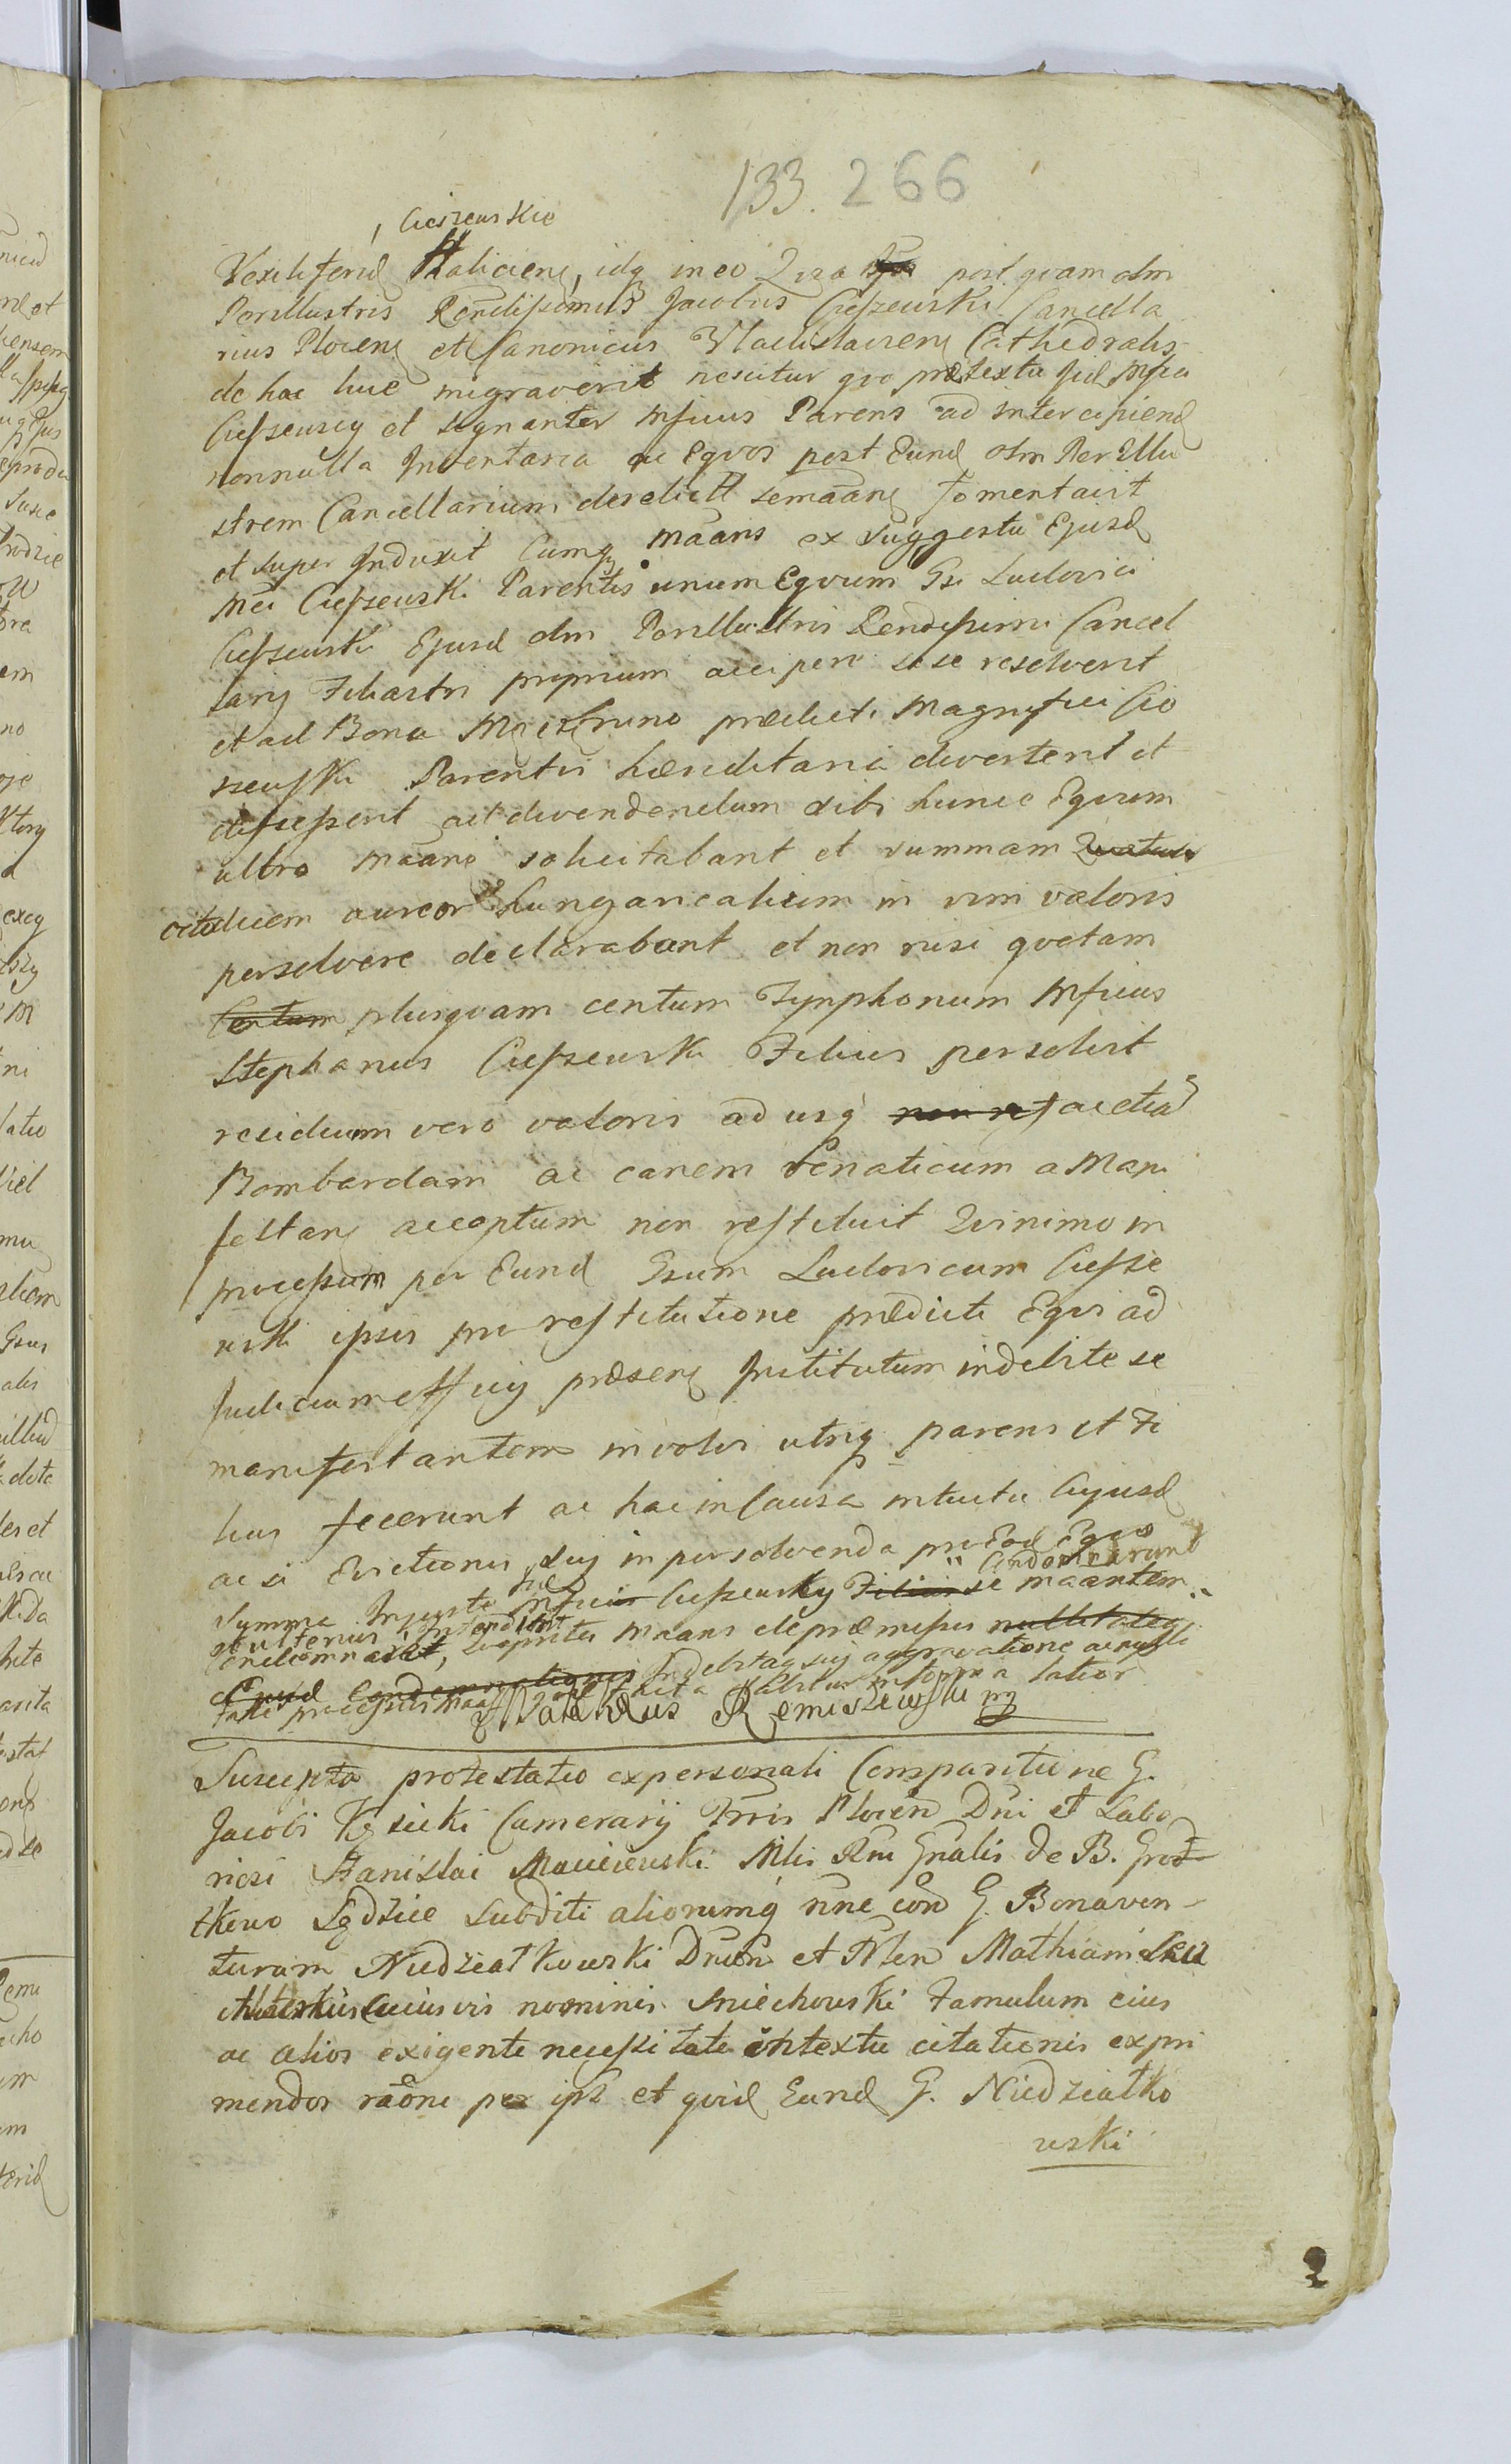 133. 266
, Cieszewskie
Vexiliferid Haliciens, idq in eo Quia post quam olm
Perillustris Rendissimus Jacobus Cieszewski Cancella
rius Plocens et Canonicus Vladislaviens Cathedralis
de hac luce migraverit nescitur quo prætextu Jud Mfici
Cieszewscy et signanter Mficus Parens ad intercipiend
nonnulla Inventaria ac Equos post Eund olm PerIllu
strem Cancellarium derelict semaans fomentavit
et super Induxit Cumq maans ex suggestu Ejusd
Mci Cieszewski Parentis unum Equum Gsi Ludovici
Cieszewski Ejusd olm Perillustris Rendissimi Cancel
larij Filiastri proprium accipere se se resolverit
et ad Bona prædicti Magnifici Cie
szewski Parentis hæreditaria diverterit et
ad divendendum sibi hunc Equum
ultro maans solicitabant et summam
octodecim aureor hungaricalium in vim valoris
persolvere declarabant et non nisi quotam
Centum plusquam centum Tynphonum Mficus
Stephanus Cieszewski Filius persolvit
residuum vero valoris ad usq non re ac etia
Bombardam ac canem Venaticum a Mani
festans acceptum non restituit Quinimo in
processum per Eund Gsum Ludovicum Ciesze
wski ipsis pro restitutione prædicti Equi ad
Judicium præsens Institutum indebite se
manifestantem involvi utriq parens et Fi
lius fecerunt ac hac in Causa intuitu Cujusd
ac si Evictionis suj in persolvenda pro Eod Equo
Condemnarunt
Summa Injusta Jud Mficus Cieszewsky Filius se maantem
et ulterius intendunt
Condemnavit, Quapropter maans de præmissis nullitateq
et Ejusd Condemnationis Indebitaq suj aggravatione ac nulli
tate processus latior
Mathæus Remiszewski mp
Suscepta protestatio ex personali Comparitione G.
Jacobi Kęsicki Camerarij Trris Plocen Dni et Labo
riosi Stanislai Maciciewski Mlis Rni Gnalis de B. Grod
tkowo Sędzice Subditi aliorumq nne con G. Bonaven
turam Niedziałkowski Dnum et Nlen Mathiam seu
cuiusvis nominis Sniechowski Famulum eius
ac alios exigente necessitate in textu citationis expri
mendos raone per ips et quid Eund G. Niedziałko
wski
2